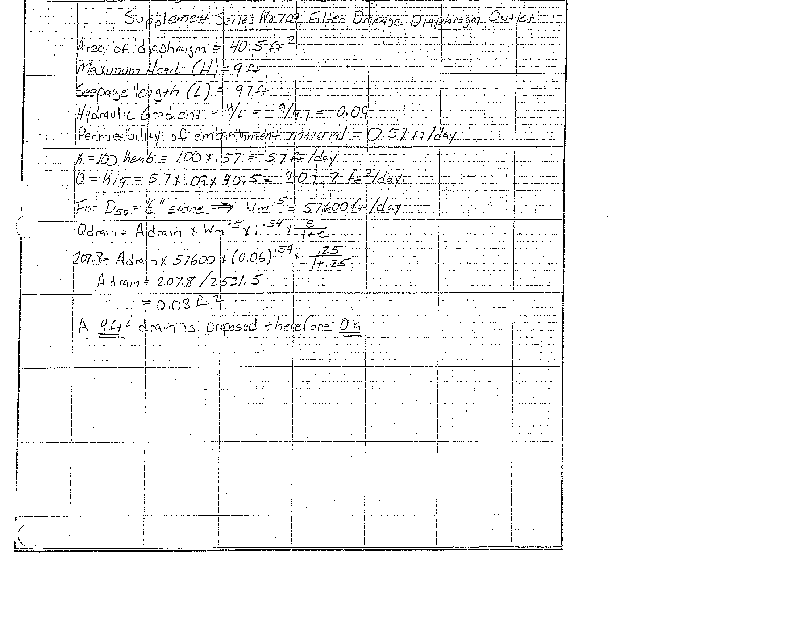 Design Diaphragm Outlet
Area of diaphragm = 40.5 ft²
Maximum Head (H) = 9 ft
Seepage length (L) = 97 ft
Hydraulic Gradient = H/L = 9/97 = 0.09
Permeability of embankment material = 0.57 ft/day
K = 100 kemb = 100 x .57 = 57 ft/day
Q = KiA = 57 x .09 x 40.5 = 207.8 ft³/day
For D50 = stone => Wm.5 = 57600 ft/day
Qdrain = Adrain x Wm.5 x i.54 x e/1+e
207.8 = Adrain x 57600 x (0.06).54 x .25/1+.25
Adrain = 207.8/2521.5
= 0.08 ft²
A drain is proposed therefore OK